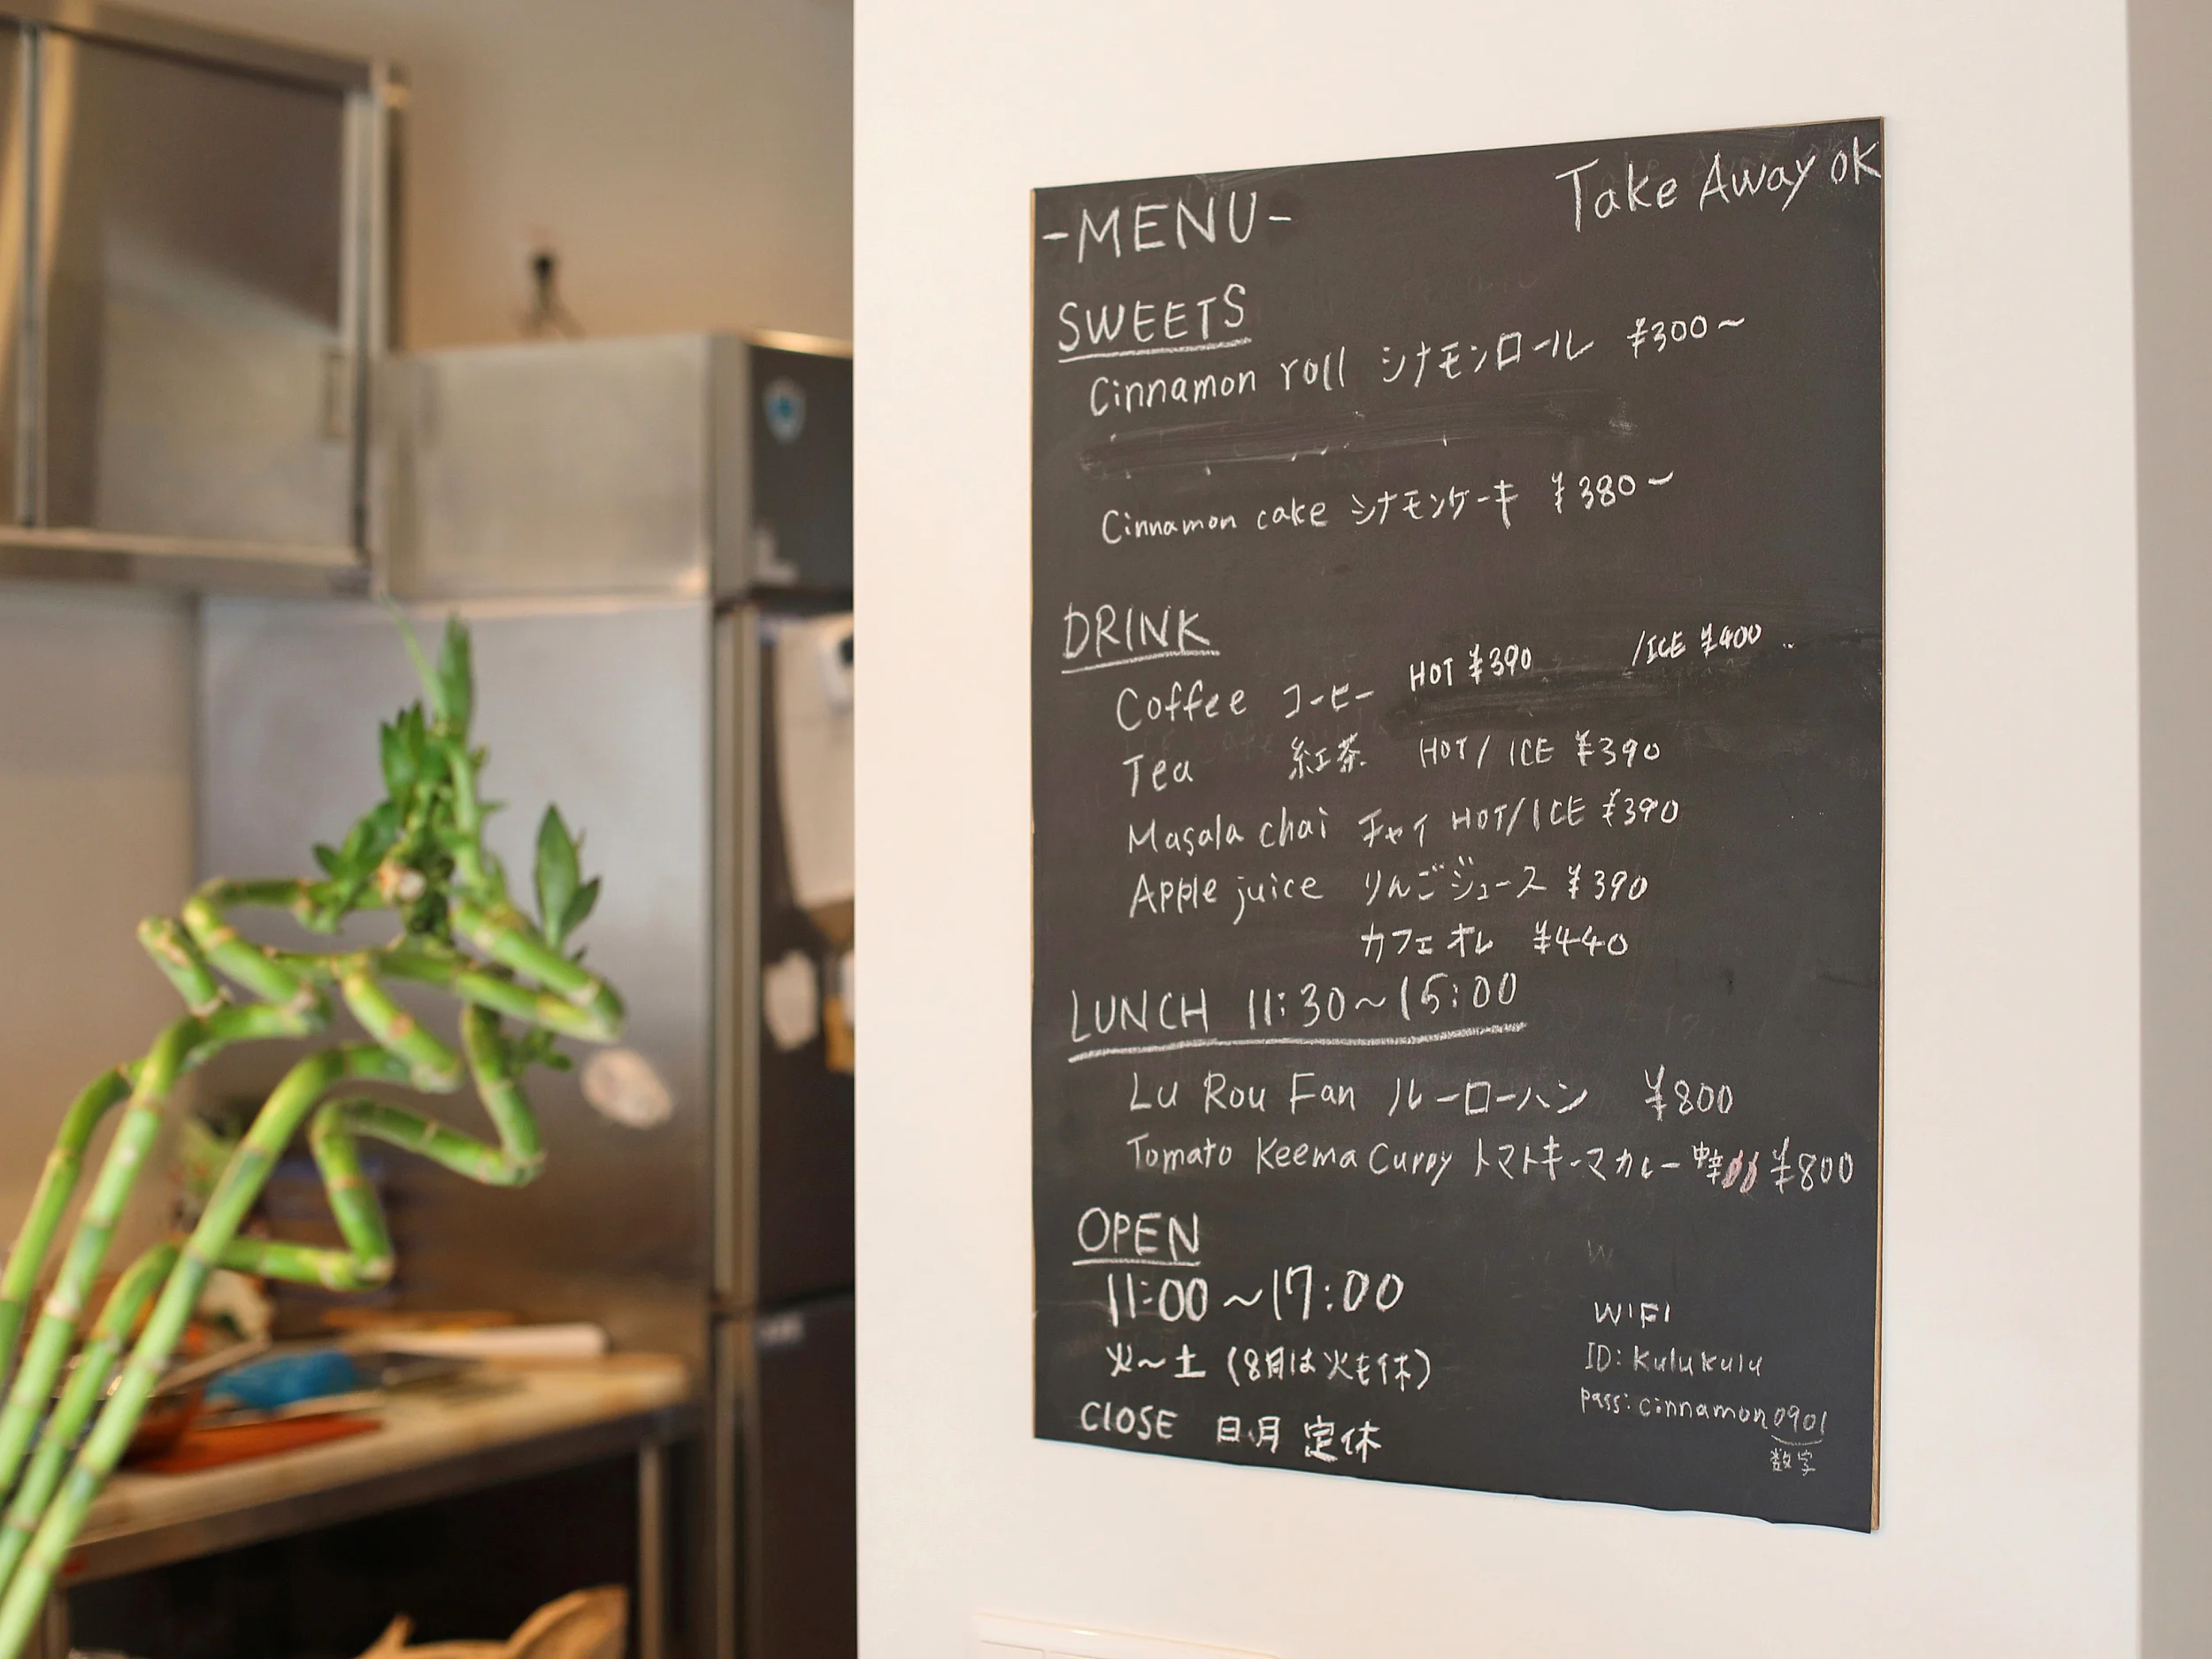 -MENU-
Take Away OK
SWEETS
Cinnamon roll シナモンロール ¥300~
Cinnamon cake シナモンケーキ ¥380~
DRINK
Coffee コーヒー HOT ¥390 /ICE ¥400
Tea 紅茶 HOT/ICE ¥390
Masala chai チャイ HOT/ICE ¥390
Apple juice りんごジュース ¥390
カフェオレ ¥440
LUNCH 11:30~15:00
Lu Rou Fan ルーローハン ¥800
Tomato Keema Curry トマトキーマカレー 中辛 ¥800
OPEN
11:00~17:00
火~土 (8月は火も休)
CLOSE 日、月 定休
W
WIFI
ID: kulukulu
pass: cinnamon0901
数字